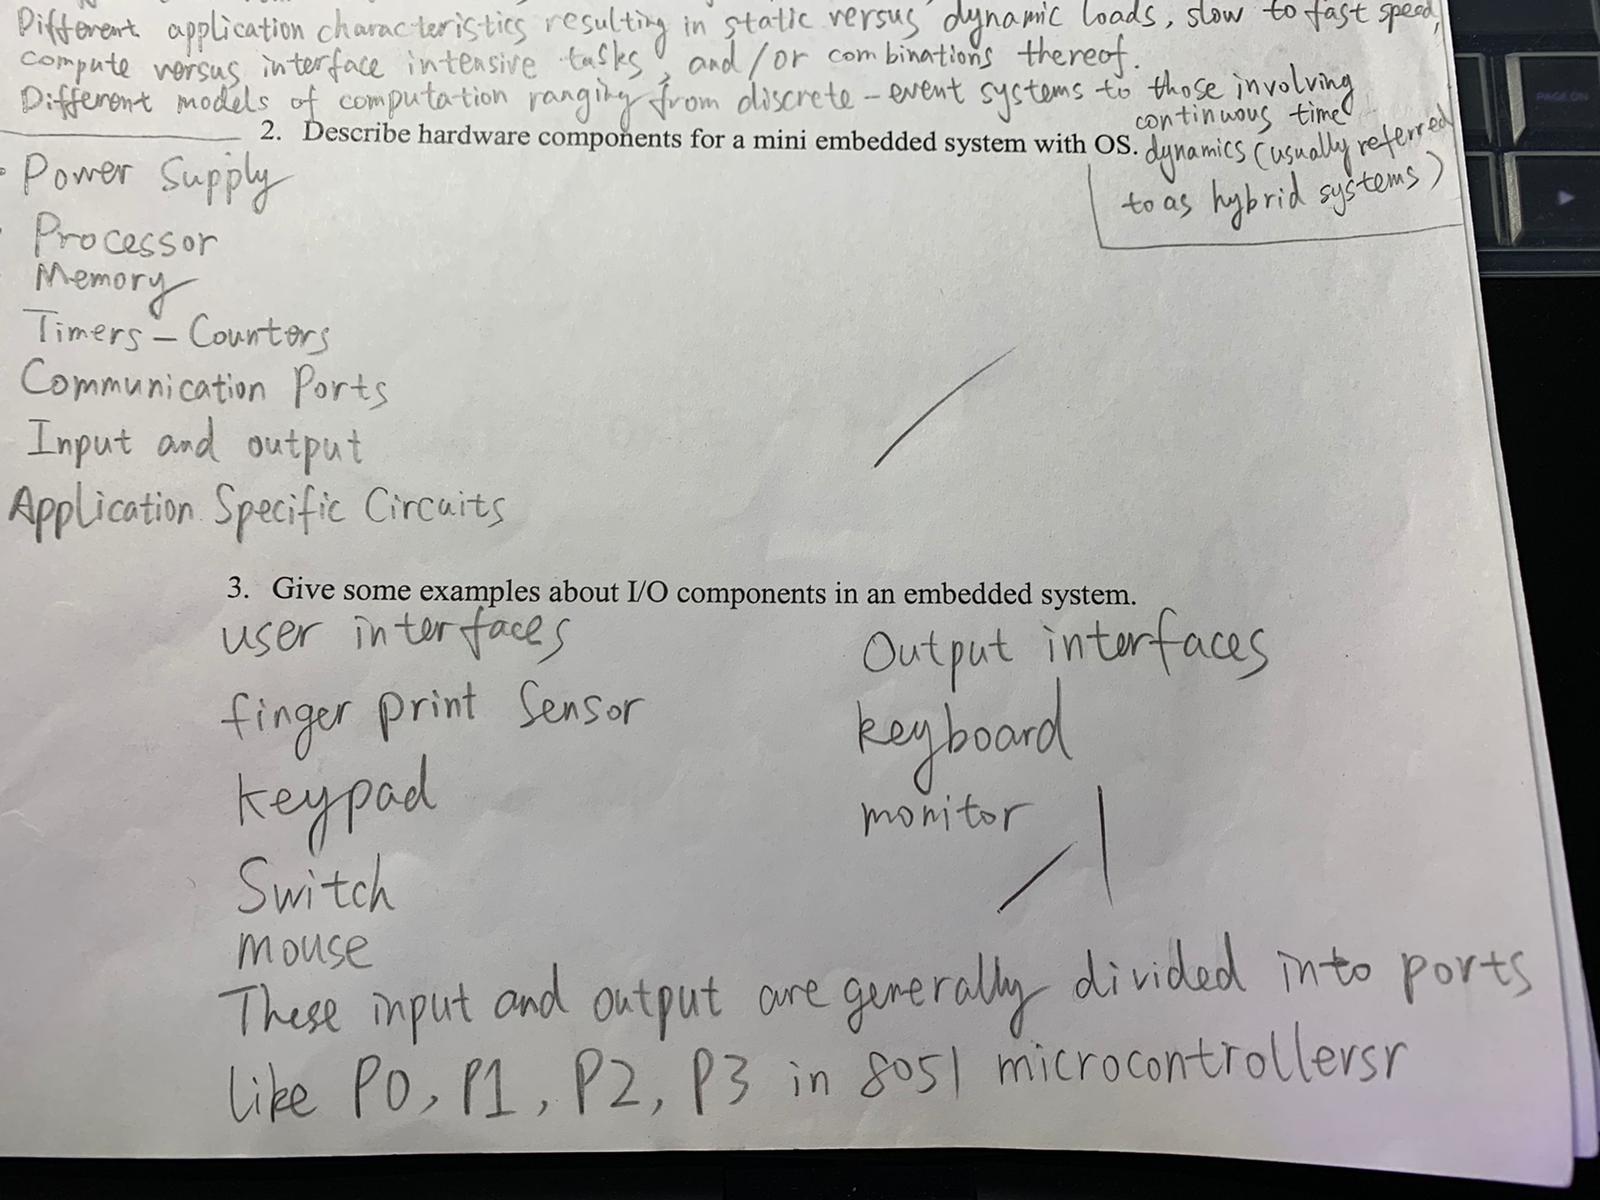 Different application characteristics resulting in static versus dynamic loads, slow to fast speed,
compute versus interface intensive tasks, and/or combinations thereof.
Different models of computation ranging from discrete-event systems to those involving
continuous time
dynamics (usually referred
to as hybrid systems)
2. Describe hardware components for a mini embedded system with OS.
Power Supply
Processor
Memory
Timers-Counters
Communication Ports
Input and output
Application Specific Circuits
3. Give some examples about I/O components in an embedded system.
user interfaces
finger print Sensor
keypad
Switch
mouse
Output interfaces
keyboard
monitor
These input and output are generally divided into ports
like P0, P1, P2, P3 in 8051 microcontrollersr